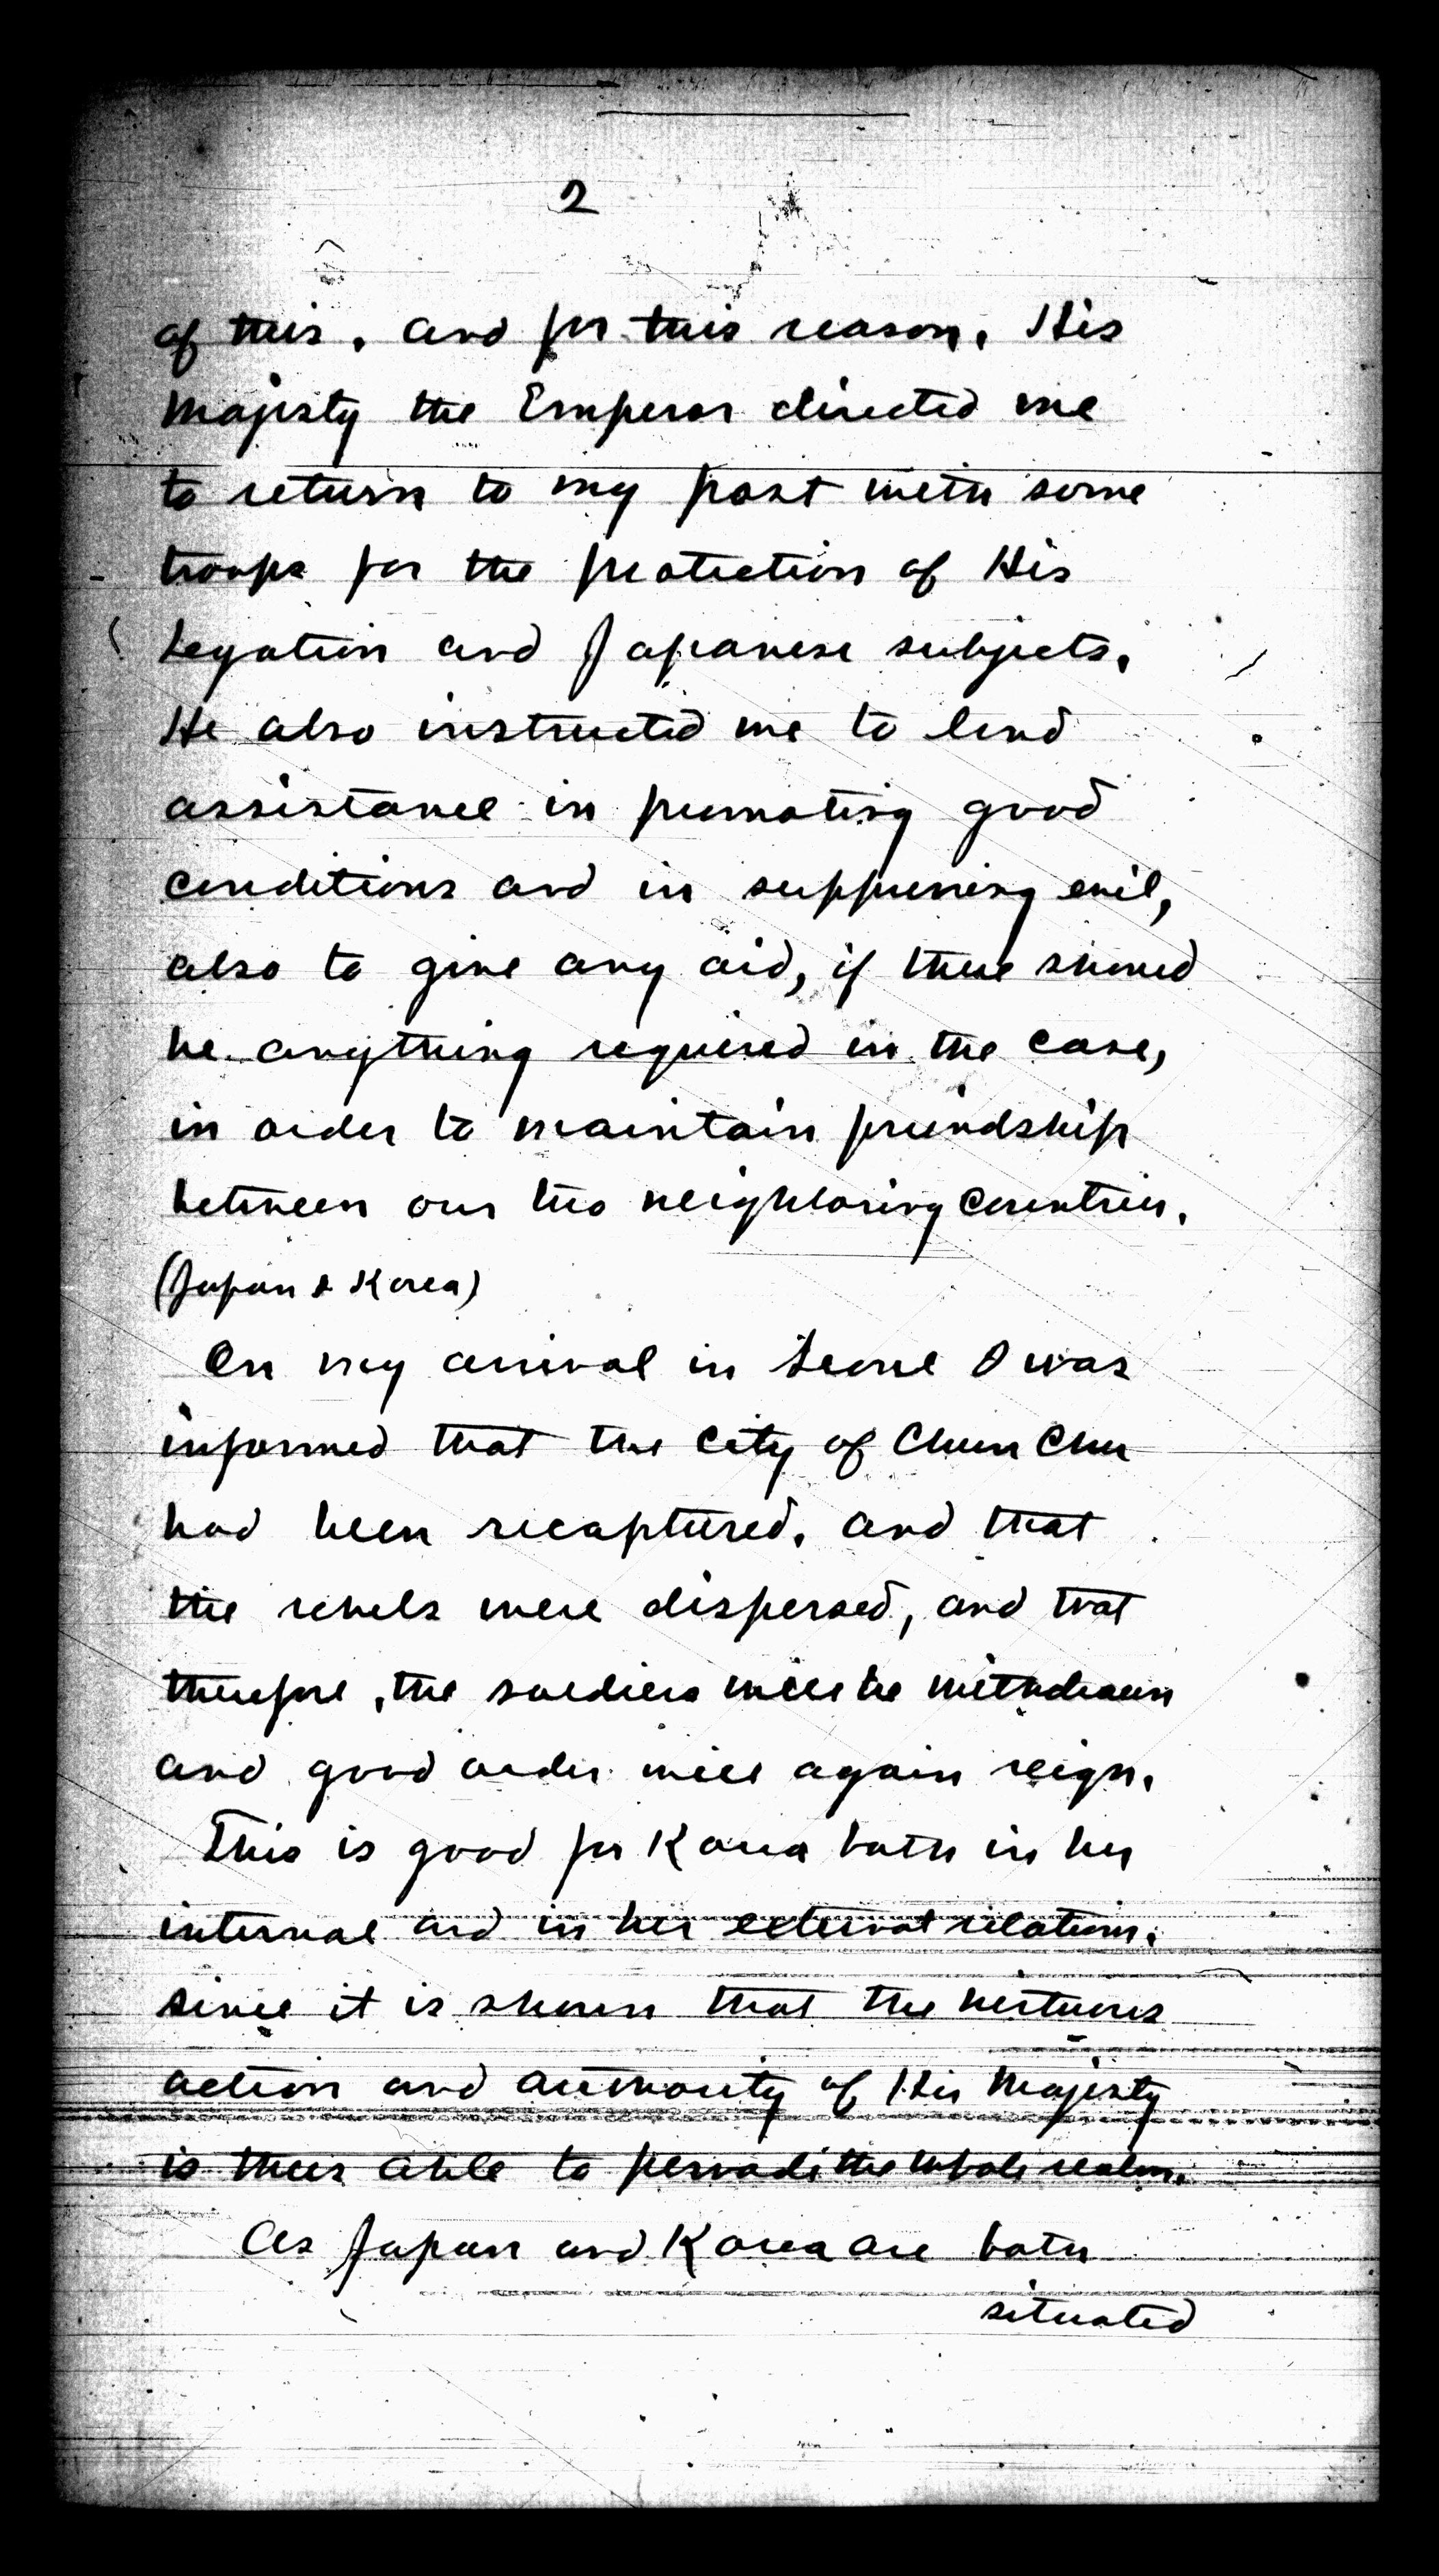 2
of this, and for this reason, His
Majesty the Emperor directed me
to return to my post with some
troops for the protection of His
Legation and Japanese subjects.
He also instructed me to lend
assistance in promoting good
conditions and in suppressing evil,
also to give any aid, if there should
be anything required in the case,
in order to maintain friendship
between our two neighboring Countries.
(Japan & Korea)
On my arrival in Seoul I was
informed that the City of Chun Chu
had been recaptured, and that
the rebels were dispersed, and that
therefore, the soldiers will be withdrawn
and good order will again reign.
This is good for Korea both in her
internal and in her external relations,
since it is shown that the virtuous
action and authority of His Majesty
is thus able to pervade the whole realm.
As Japan and Korea are both
situated